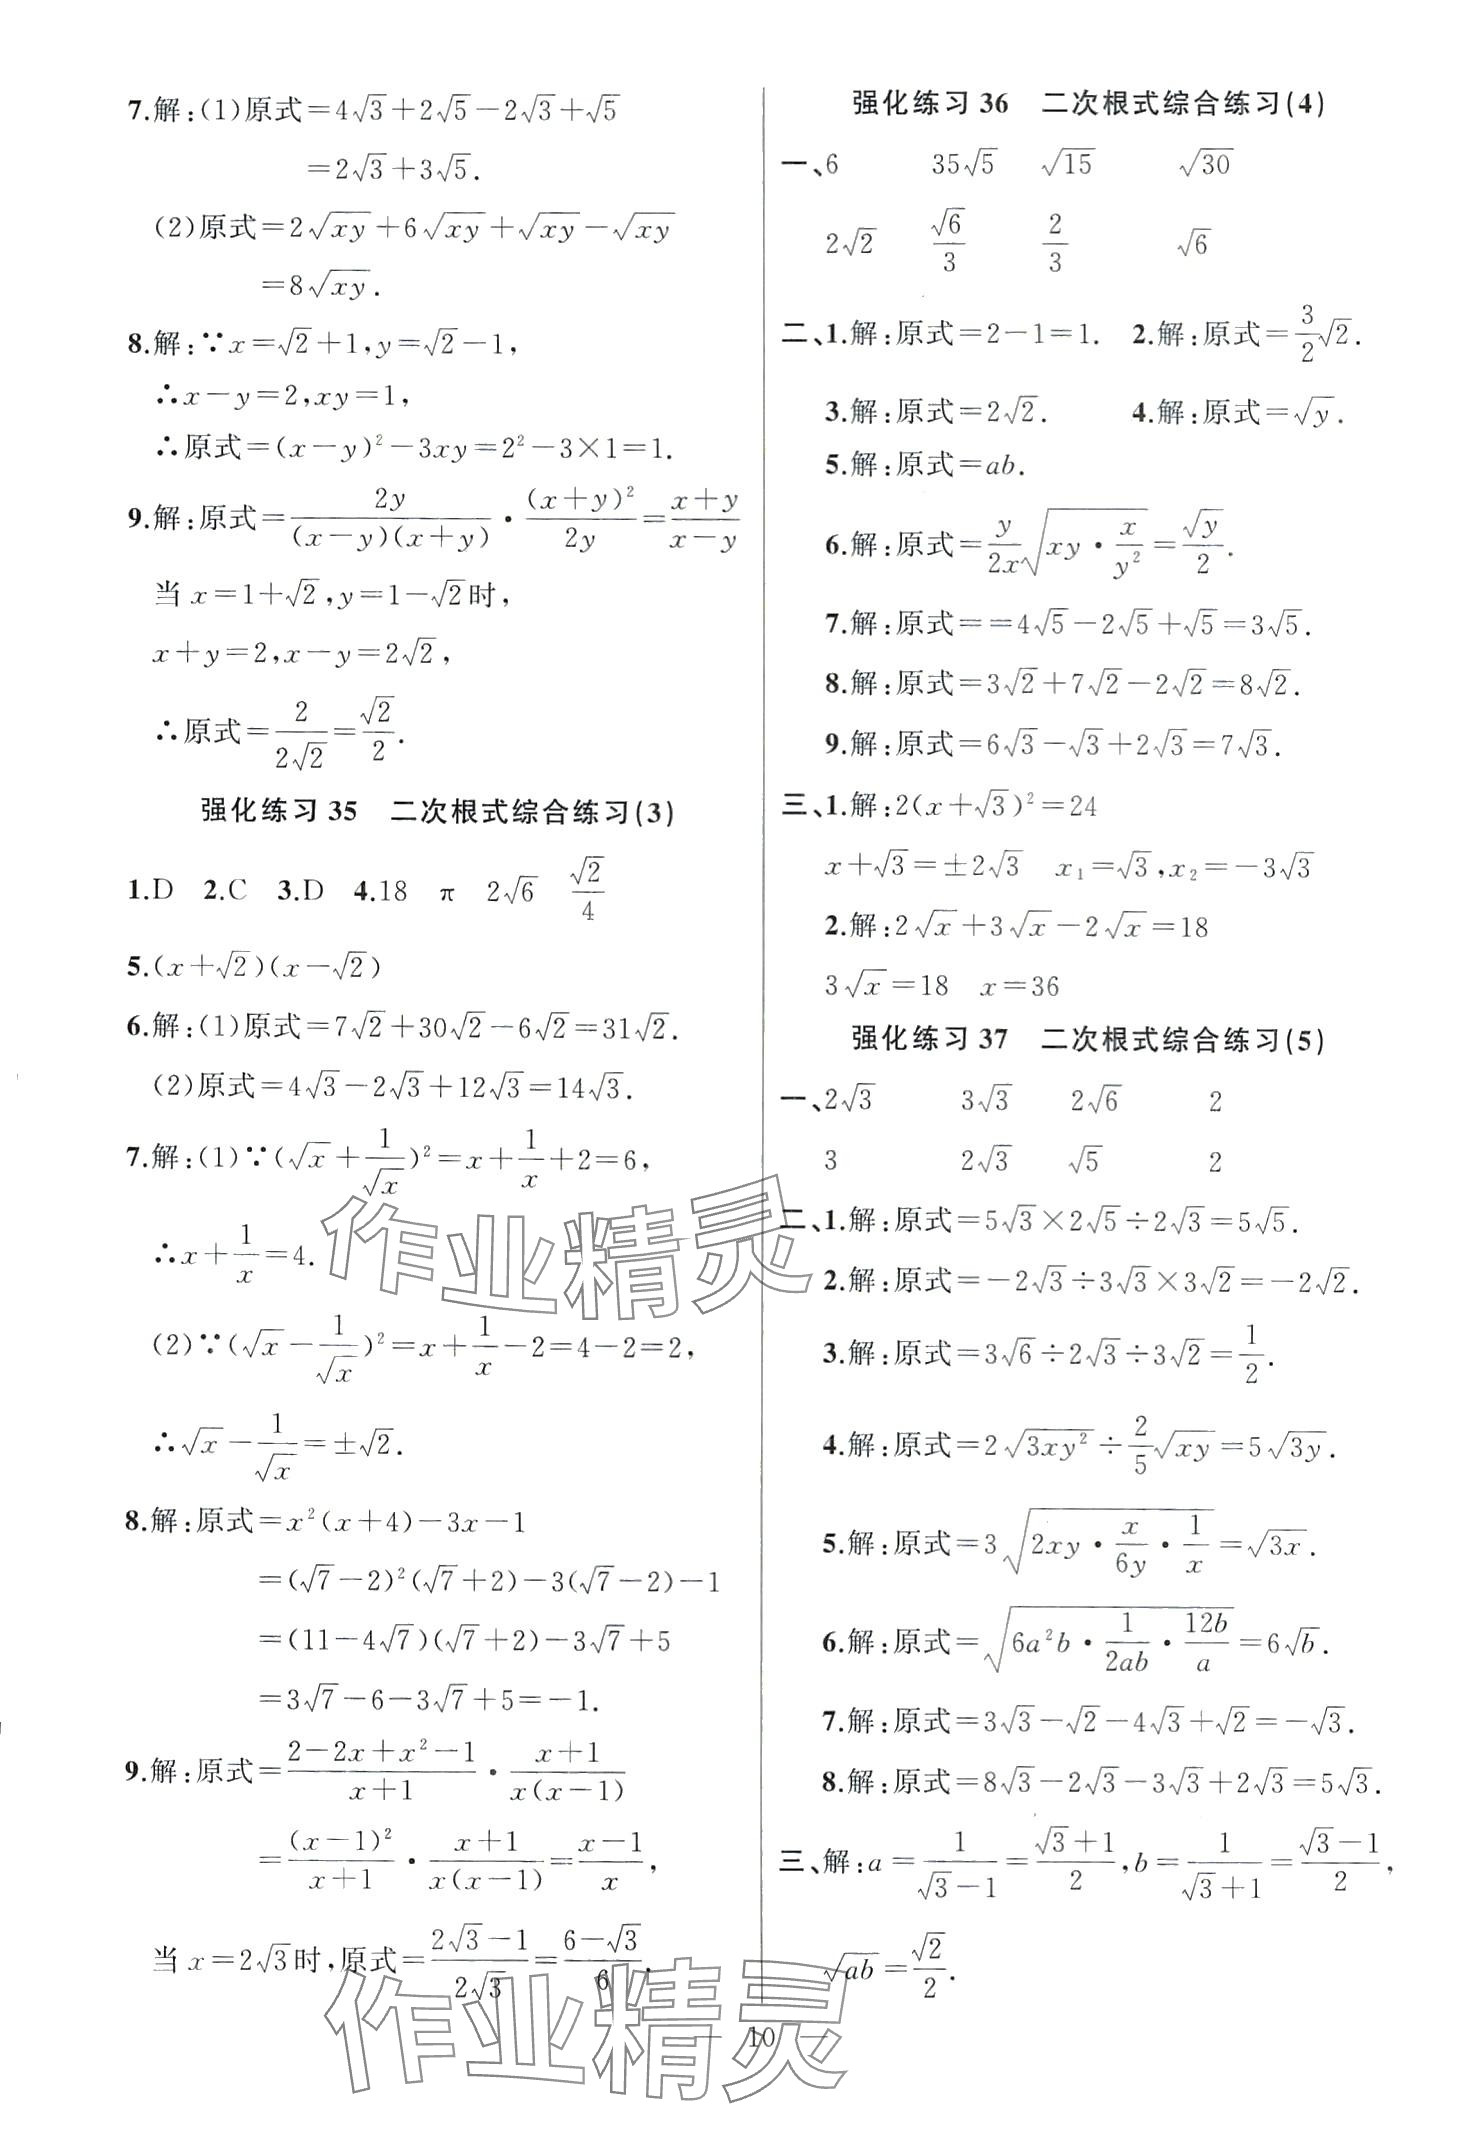 7.解:(1)原式=4√3+2√5-2√3+√5
=2√3+3√5.
(2)原式=2√(xy)+6√(xy)+√(xy)-√(xy)
=8√(xy).
8.解:∵x=√2+1,y=√2-1,
∴x-y=2,xy=1,
∴原式=(x-y)²-3xy=2²-3×1=1.
9.解:原式=2y/((x-y)(x+y))·(x+y)²/(2y)=(x+y)/(x-y)
当x=1+√2,y=1-√2时,
x+y=2,x-y=2√2,
∴原式=2/(2√2)=√2/2.
强化练习35 二次根式综合练习(3)
1.D 2.C 3.D 4.18 π 2√6 √2/4
5.(x+√2)(x-√2)
6.解:(1)原式=7√2+30√2-6√2=31√2.
(2)原式=4√3-2√3+12√3=14√3.
7.解:(1)∵(√x+1/√x)²=x+1/x+2=6,
∴x+1/x=4.
(2)∵(√x-1/√x)²=x+1/x-2=4-2=2,
∴√x-1/√x=±√2.
8.解:原式=x²(x+4)-3x-1
=(√7-2)²(√7+2)-3(√7-2)-1
=(11-4√7)(√7+2)-3√7+5
=3√7-6-3√7+5=-1.
9.解:原式=(2-2x+x²-1)/(x+1)·(x+1)/(x(x-1))
=(x-1)²/(x+1)·(x+1)/(x(x-1))=(x-1)/x,
当x=2√3时,原式=(2√3-1)/(2√3)=(6-√3)/6.
强化练习36 二次根式综合练习(4)
一、6 35√5 √15 √30
2√2 √6/3 2/3 √6
二、1.解:原式=2-1=1. 2.解:原式=3/2√2.
3.解:原式=2√2. 4.解:原式=√y.
5.解:原式=ab.
6.解:原式=y/(2x)√(xy·x/y²)=√y/2.
7.解:原式==4√5-2√5+√5=3√5.
8.解:原式=3√2+7√2-2√2=8√2.
9.解:原式=6√3-√3+2√3=7√3.
三、1.解:2(x+√3)²=24
x+√3=±2√3 x₁=√3,x₂=-3√3
2.解:2√x+3√x-2√x=18
3√x=18 x=36
强化练习37 二次根式综合练习(5)
一、2√3 3√3 2√6 2
3 2√3 √5 2
二、1.解:原式=5√3×2√5÷2√3=5√5.
2.解:原式=-2√3÷3√3×3√2=-2√2.
3.解:原式=3√6÷2√3÷3√2=1/2.
4.解:原式=2√(3xy²)÷2/5√(xy)=5√(3y).
5.解:原式=3√(2xy·x/(6y)·1/x)=√(3x).
6.解:原式=√(6a²b·1/(2ab)·12b/a)=6√b.
7.解:原式=3√3-√2-4√3+√2=-√3.
8.解:原式=8√3-2√3-3√3+2√3=5√3.
三、解:a=1/(√3-1)=(√3+1)/2,b=1/(√3+1)=(√3-1)/2,
√(ab)=√2/2.
10
作业精灵
作业精灵